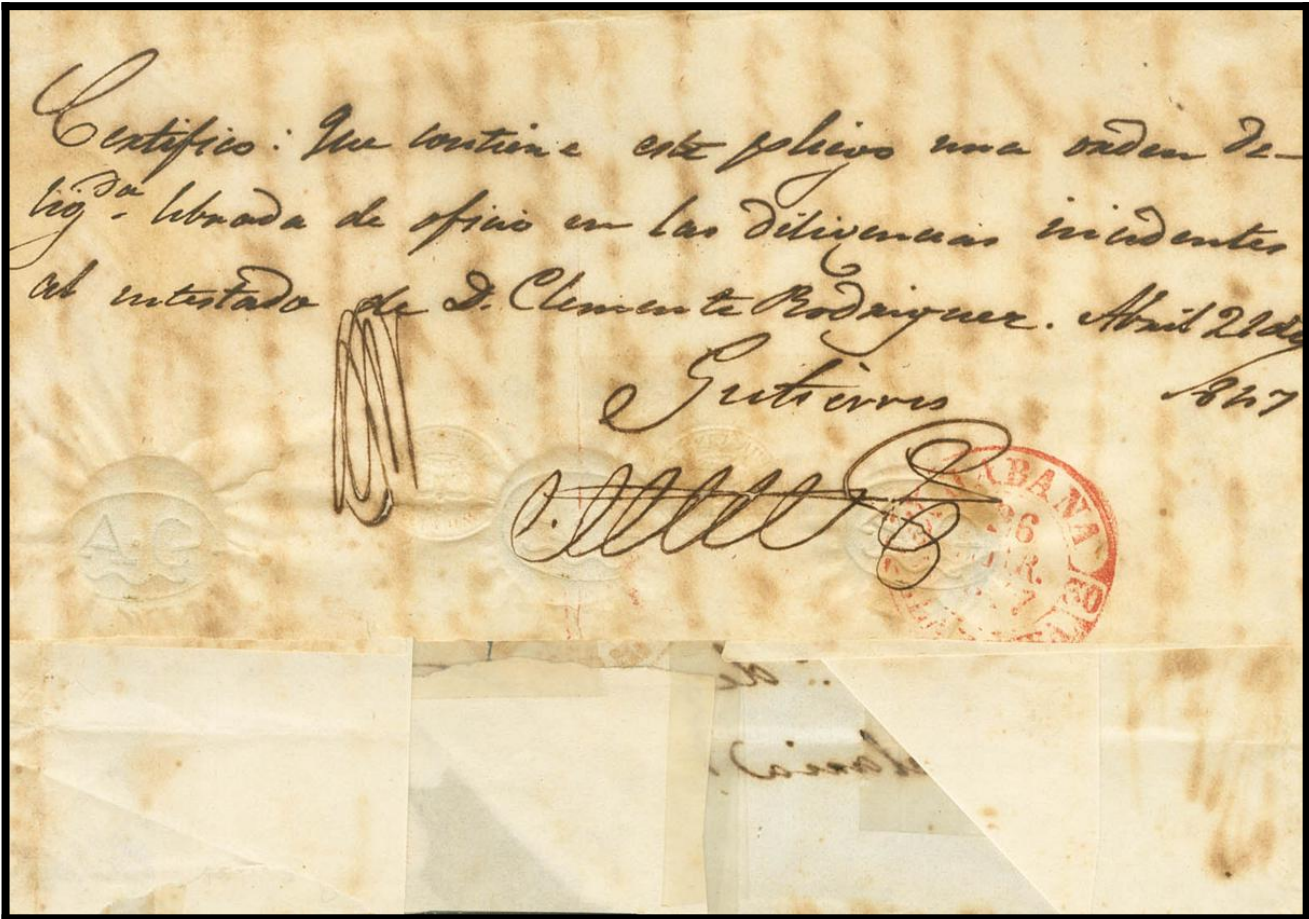 Certifico: Que contiene este pliego una orden de-
lig.da librada de oficio en las diligencias incidentes
al intestado de D. Clemente Rodriguez. Abril 21 de
847
Gutierres
A.G
HABANA
26
7
de